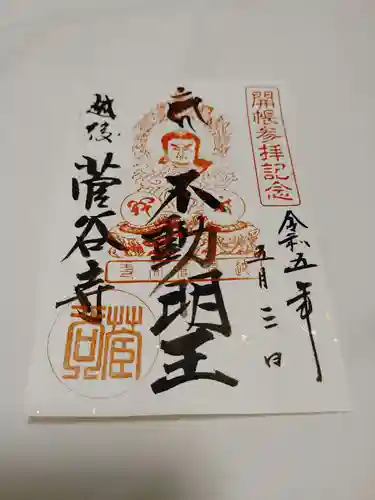 開帳参拝記念
令和五年
五月三日
不動明王
越後
菅谷寺